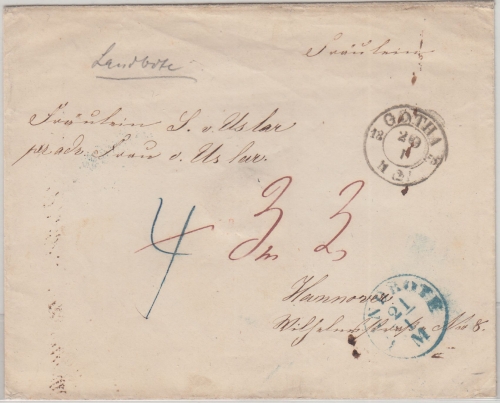 Landbote
Fräulein
Fräulein S. v. Uslar
pr. adr. Frau v. Uslar.
GOTHA
20
11
4 3 3
Hannover
Wilhelmstraße No 8.
21
M